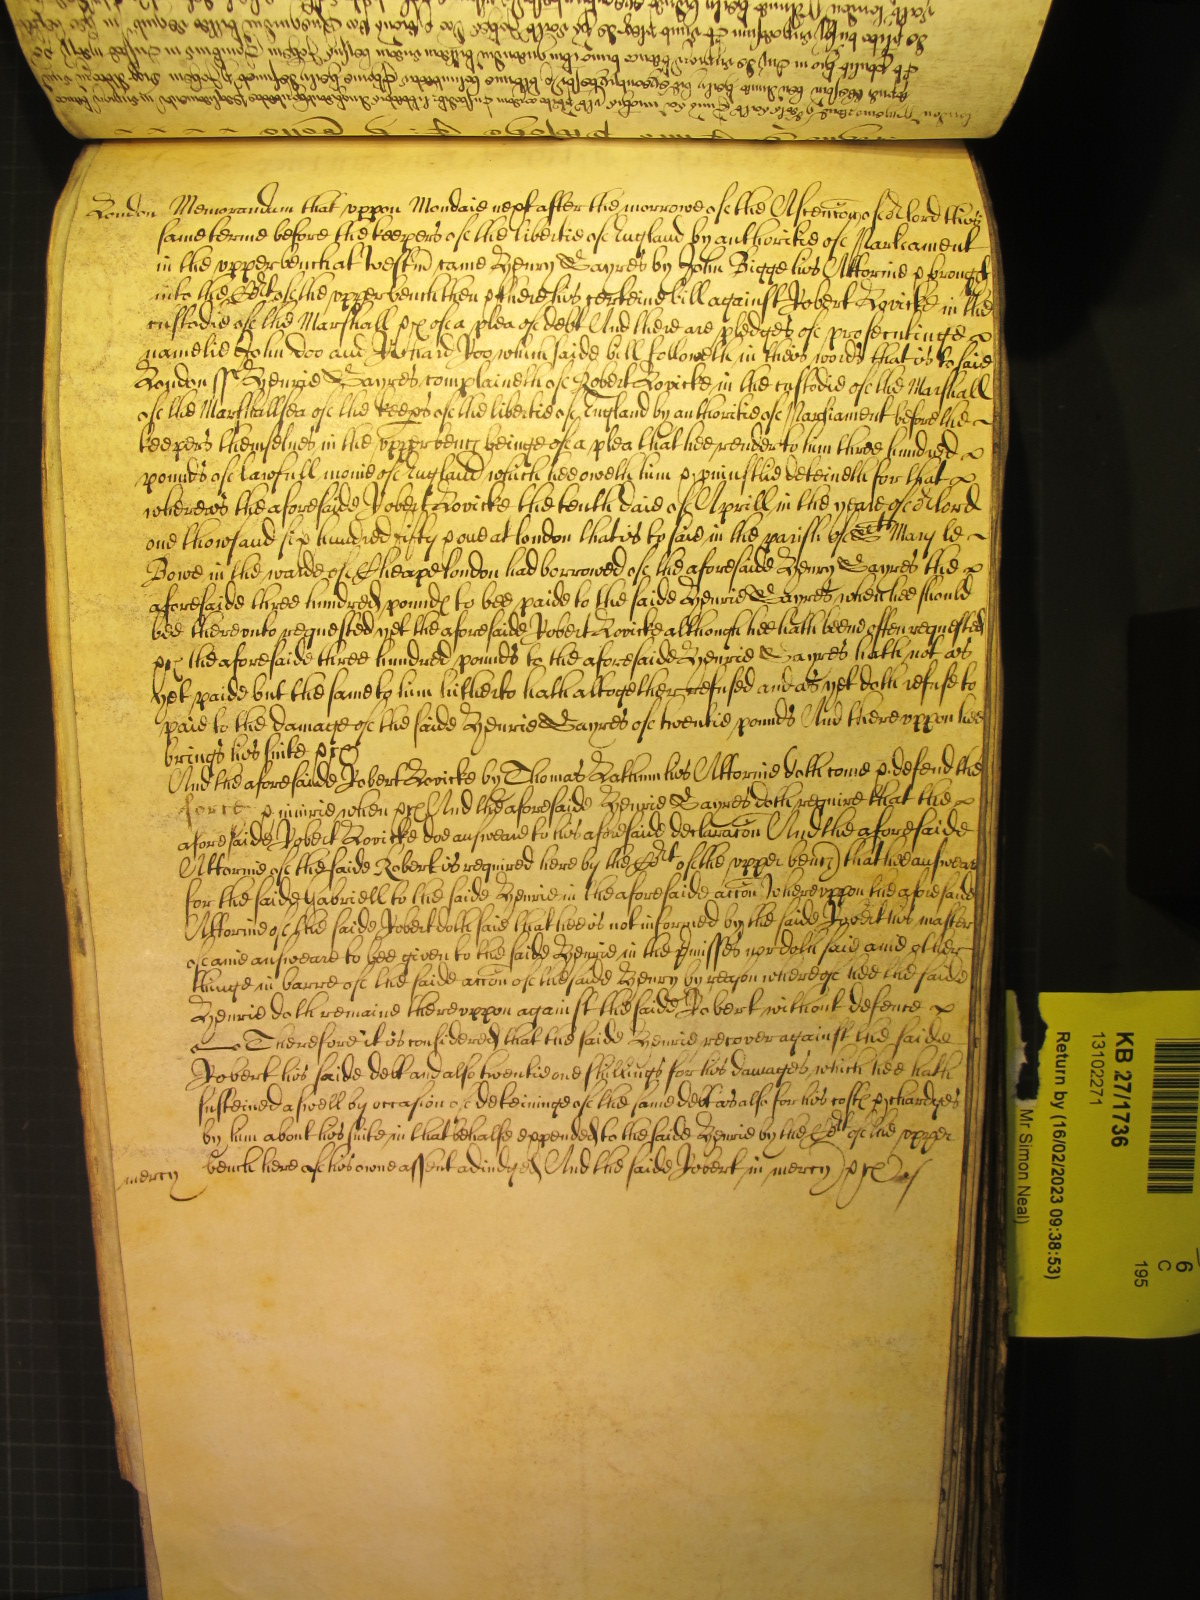 London Memorandum that uppon Mondaie next after the morrowe of the Ascencōn of o{r} lord this
same terme before the keepers of the libertie of England by authoritie of Parliament
in the upper bench at Westm̄ came Henry Sayres by John Bigge his Attornie & brought
into the Co{r}t of the upper bench then & there his certeine bill against Robert Lovicke in the
custodie of the Marshall &c of a plea of debt And there are pledges of prosecutinge
namelie John Doo and Richard Roo which saide bill followeth in theis words that is to saie
London ss Henrie Sayres complaineth of Robert Lovicke in the custodie of the Marshall
of the Marshallsea of the keeps of the libertie of England by authoritie of Parliament before the
keepers themselves in the upper bench beinge of a plea that hee render to him three hundred
pounds of lawfull monie of England which hee oweth him & uniustlie deteineth for that
whereas the aforesaide Robert Lovicke the tenth daie of Aprill in the yeare of o{r} lord
one thowsand six hundred fifty & one at london that is to saie in the parish of S{ct} Mary le
Bowe in the warde of Cheape london had borrowed of the aforesaide Henry Sayres the
aforesaide three hundred pounds to bee paide to the saide Henrie Sayres when hee should
bee thereunto requested yet the aforesaide Robert Lovicke although hee hath beene often requested
&c the aforesaide three hundred pounds to the aforesaide Henrie Sayres hath not as
yet paide but the same to him hitherto hath altogether refused and as yet doth refuse to
paie to the damage of the saide Henrie Sayres of twentie pounds And thereuppon hee
brings his suite &c
And the aforesaide Robert Lovicke by Thomas Rathum his Attornie doth come & defend the
force & iniurie when &c And the aforesaide Henrie Sayres doth require that the
aforesaide Robert Lovicke doe answeare to his aforesaide declaracōn And the aforesaide
Attornie of the saide Robert is required here by the Co{r}t of the upper bench that hee answeare
for the saide Gabriell to the saide Henrie in the aforesaide accōn whereuppon the aforesaide
Attornie of the saide Robert doth saie that hee is not informed by the saide Robert his master
of anie answeare to bee given to the saide Henrie in the p̄misses nor doth saie anie other
thinge in barre of the saide accōn of the saide Henry by reason whereof hee the saide
Henrie doth remaine thereuppon against the saide Robert without defence
Therefore it is considered that the saide Henrie recover against the saide
Robert his saide debt and also twentie one shillings for his damages which hee hath
susteined aswell by occasion of deteininge of the same debt as also for his costs & chardges
by him about his suite in that behalfe expended to the saide Henrie by the Co{r}t of the upper
mercy bench here of his owne assent adiudged And the saide Robert in mercy &c
KB 27/1736
13102271
Return by (16/02/2023 09:38:53)
Mr Simon Neal)
6
C
195